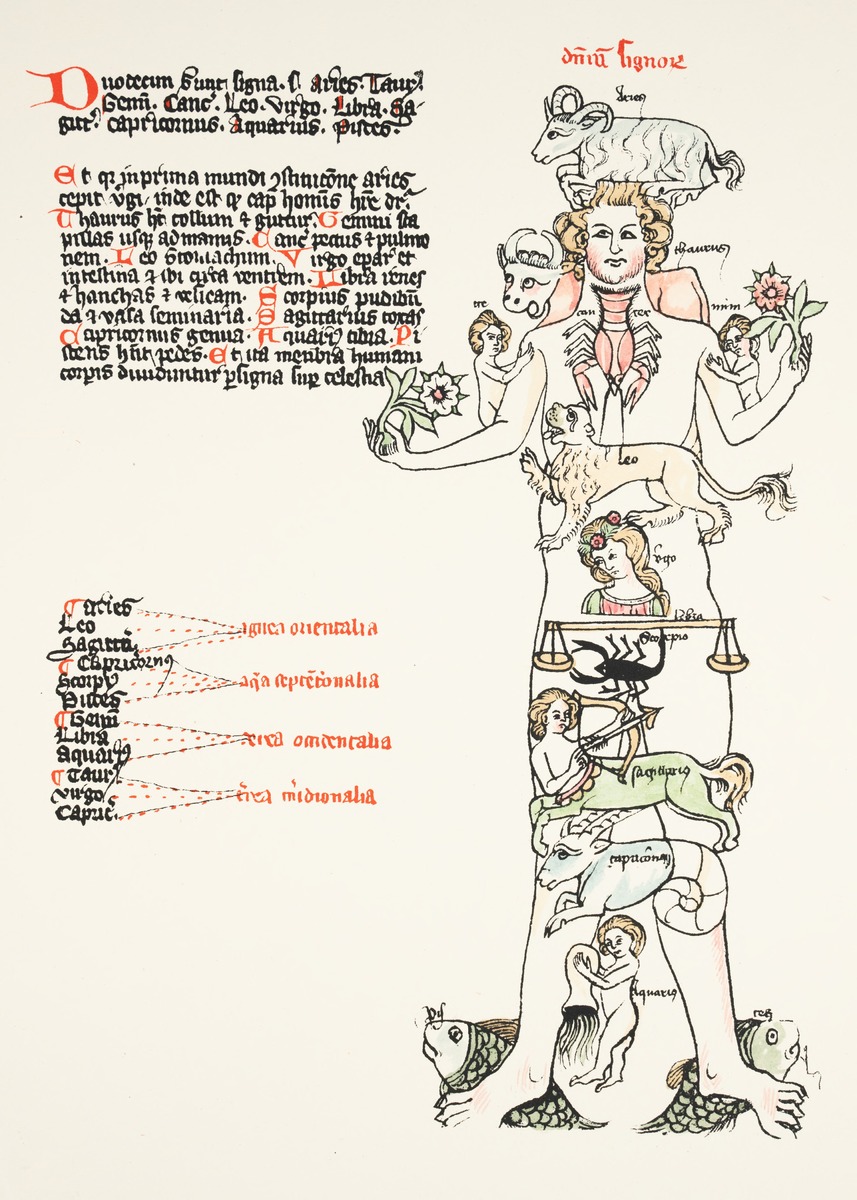 Duodecim sunt signa. s. aries. Taurꝰ
Gemi. Canc. Leo. Virgo. Libra. Sa-
gitt. Capricornus. Aquarius. pisces.
Et qr in prima mundi aries
cepit inde est cap hominis dr.
Thaurus ht collum & guttur. Gemini sca
pillas usque ad manus. Canc pectus & pulmo
nem. Leo Stomachum. Virgo epar et
intestina & ibi ventrem. Libra renes
& hanchas & vesicam. Scorpius pudibun
da & vasa seminaria. Sagittarius coxas
Capricornus genua. Aquarꝰ tibia. Pi
scens hnt pedes. Et ita membra humani
corporis dividuntur signa celestia
dn̄iū signoꝝ
Aries
thaurus
ge
mini
can cer
Leo
virgo
Libra
Scorpio
sagittariꝰ
capricornꝰ
Aquariꝰ
pis
ces
aries
Leo
Sagitt
Capricornꝰ
Scorpꝰ
Pisces
Gemi
Libra
Aquarꝰ
Taur
Virgo
Capric.
ignea orientalia
aqa septentonalia
aerea occidentalia
trea midionalia